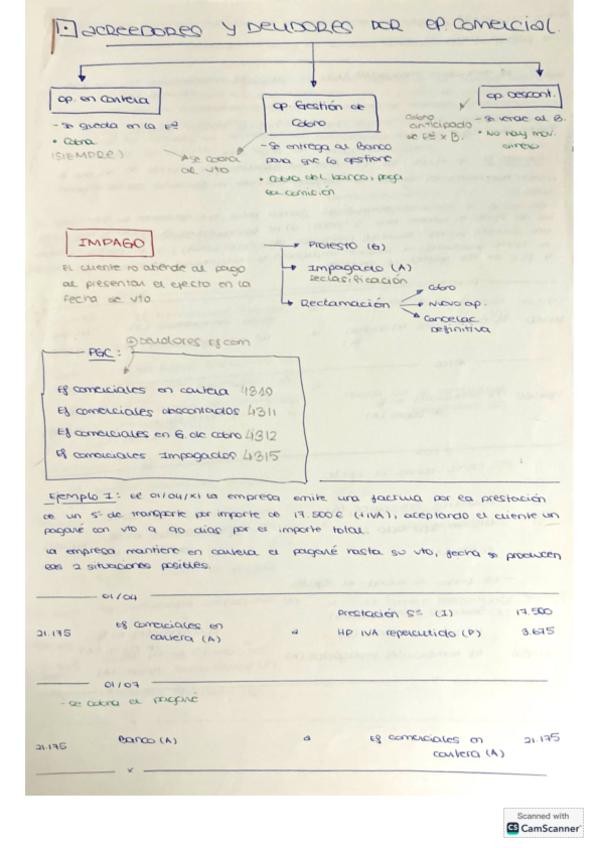 ACREEDORES Y DEUDORES POR OP. COMERCIAL
op. en cartera
- Se queda en la Eª
• Cobra
(SIEMPRE)
→ se cobra
al vto
op. Gestión de
Cobro
- Se entrega al Banco
para que lo gestione
• Cobra del banco, paga
su comisión
Cobro
anticipado
de Eª x B.
op Descont.
- Se vende al B.
• No hay mov.
dinero
IMPAGO
El cliente no atiende al pago
al presentar el efecto en la
fecha de vto
Protesto (G)
Impagado (A)
Reclasificación
Reclamación
Cobro
Nuevo ap.
Cancelac.
Definitiva
PGC:
Deudores Ef com
Ef comerciales en cartera 4310
Ef comerciales descontados 4311
Ef comerciales en G. de cobro 4312
Ef comerciales Impagados 4315
Ejemplo 1: el 01/04/X1 la empresa emite una factura por la prestación
de un Sº de transporte por importe de 17.500€ (+IVA), aceptando el cliente un
pagaré con vto a 90 días por el importe total.
La empresa mantiene en cartera el pagaré hasta su vto, fecha se producen
las 2 situaciones posibles.
01/04
21.175 Ef comerciales en
cartera (A)
a
Prestación Sº (I) 17.500
HP IVA repercutido (P) 3.675
01/07
- se cobra el pagaré
21.175 Banco (A) a Ef comerciales en 21.175
cartera (A)
x
Scanned with
CS CamScanner